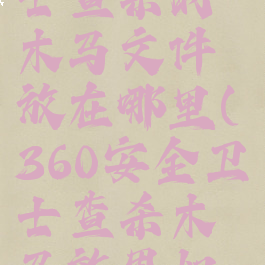 士查杀的
木马文件
放在哪里(
360安全卫
士查杀木